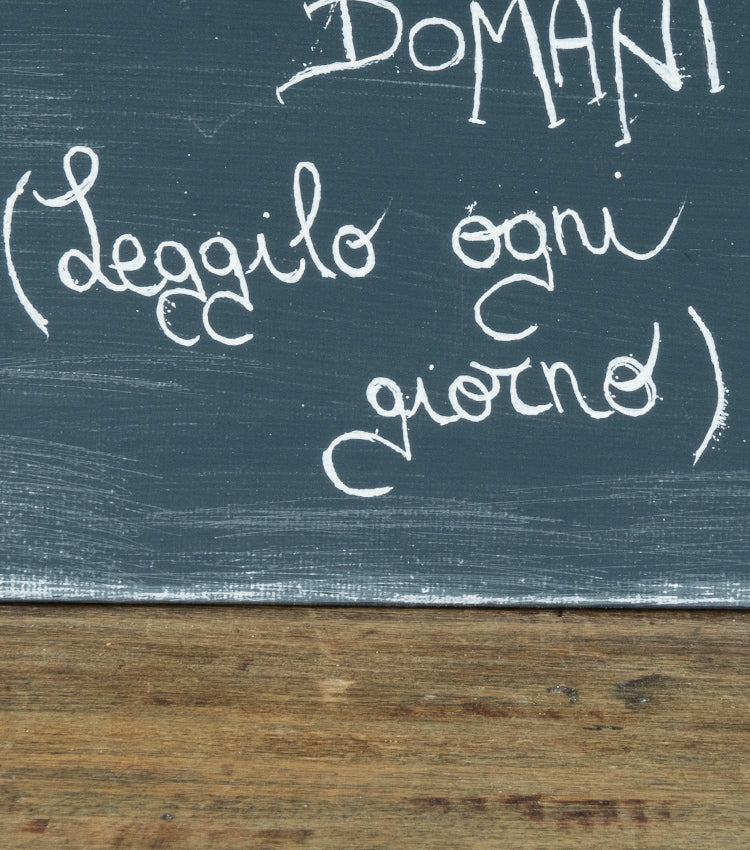 DOMANI
(Leggilo ogni
giorno)